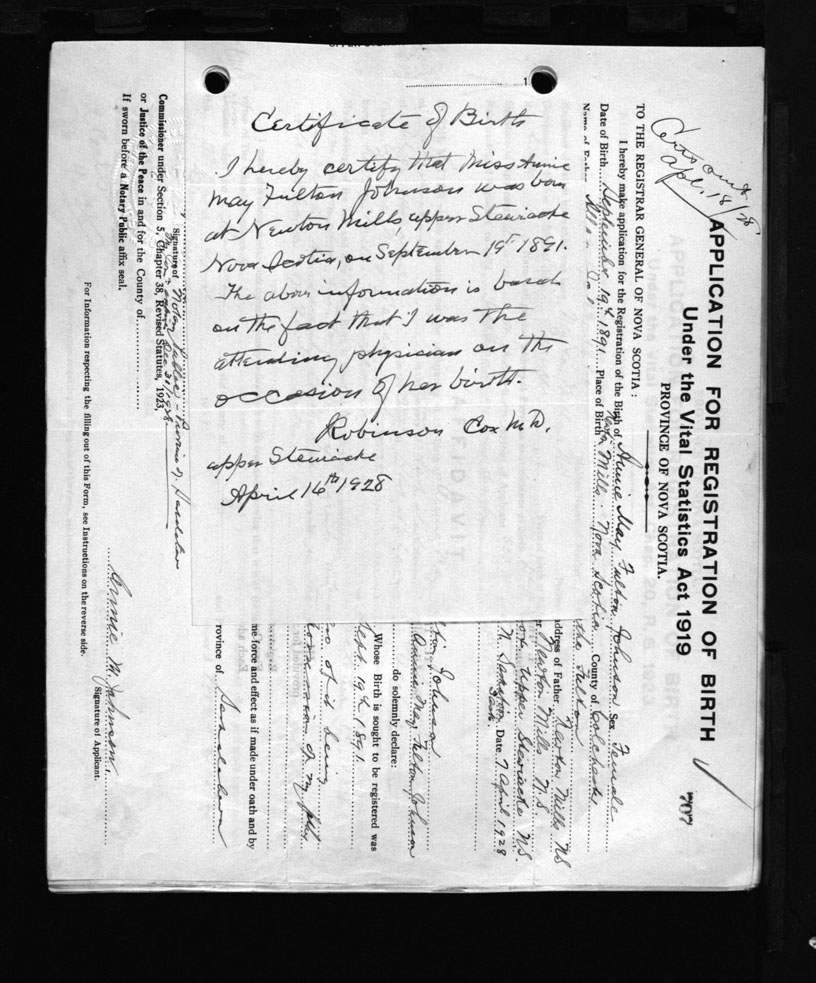 Certificate of Birth
I hereby certify that Miss Annie
May Fulton Johnson was born
at Newton Mills, upper Stewiacke
Nova Scotia, on September 19th 1891.
The above information is based
on the fact that I was the
attending physician on the
occasion of her birth.
Robinson Cox M.D.
upper Stewiacke
April 16th 1928
Apl. 18/28
APPLICATION FOR REGISTRATION OF BIRTH
707
Under the Vital Statistics Act 1919
PROVINCE OF NOVA SCOTIA.
TO THE REGISTRAR GENERAL OF NOVA SCOTIA:
I hereby make application for the Registration of the Birth of Annie May Fulton Johnson Sex Female
Date of Birth September 19th 1891 Place of Birth Newton Mills Nova Scotia County of Colchester
Fulton
address of Father Newton Mills NS
Newton Mills N.S.
Upper Stewiacke NS.
Date 7 April 1928
Johnson
do solemnly declare:
Annie May Fulton Johnson
Whose Birth is sought to be registered was
Sept. 19th 1891
of it being
of my
me force and effect as if made under oath and by
rovince of Saskatchewan
Signature of Notary Public - Province of Saskatchewan
Commissioner under Section 5, Chapter 38, Revised Statutes, 1923,
or Justice of the Peace in and for the County of
If sworn before a Notary Public affix seal.
Annie M. Johnson
Signature of Applicant.
For Information respecting the filling out of this Form, see Instructions on the reverse side.